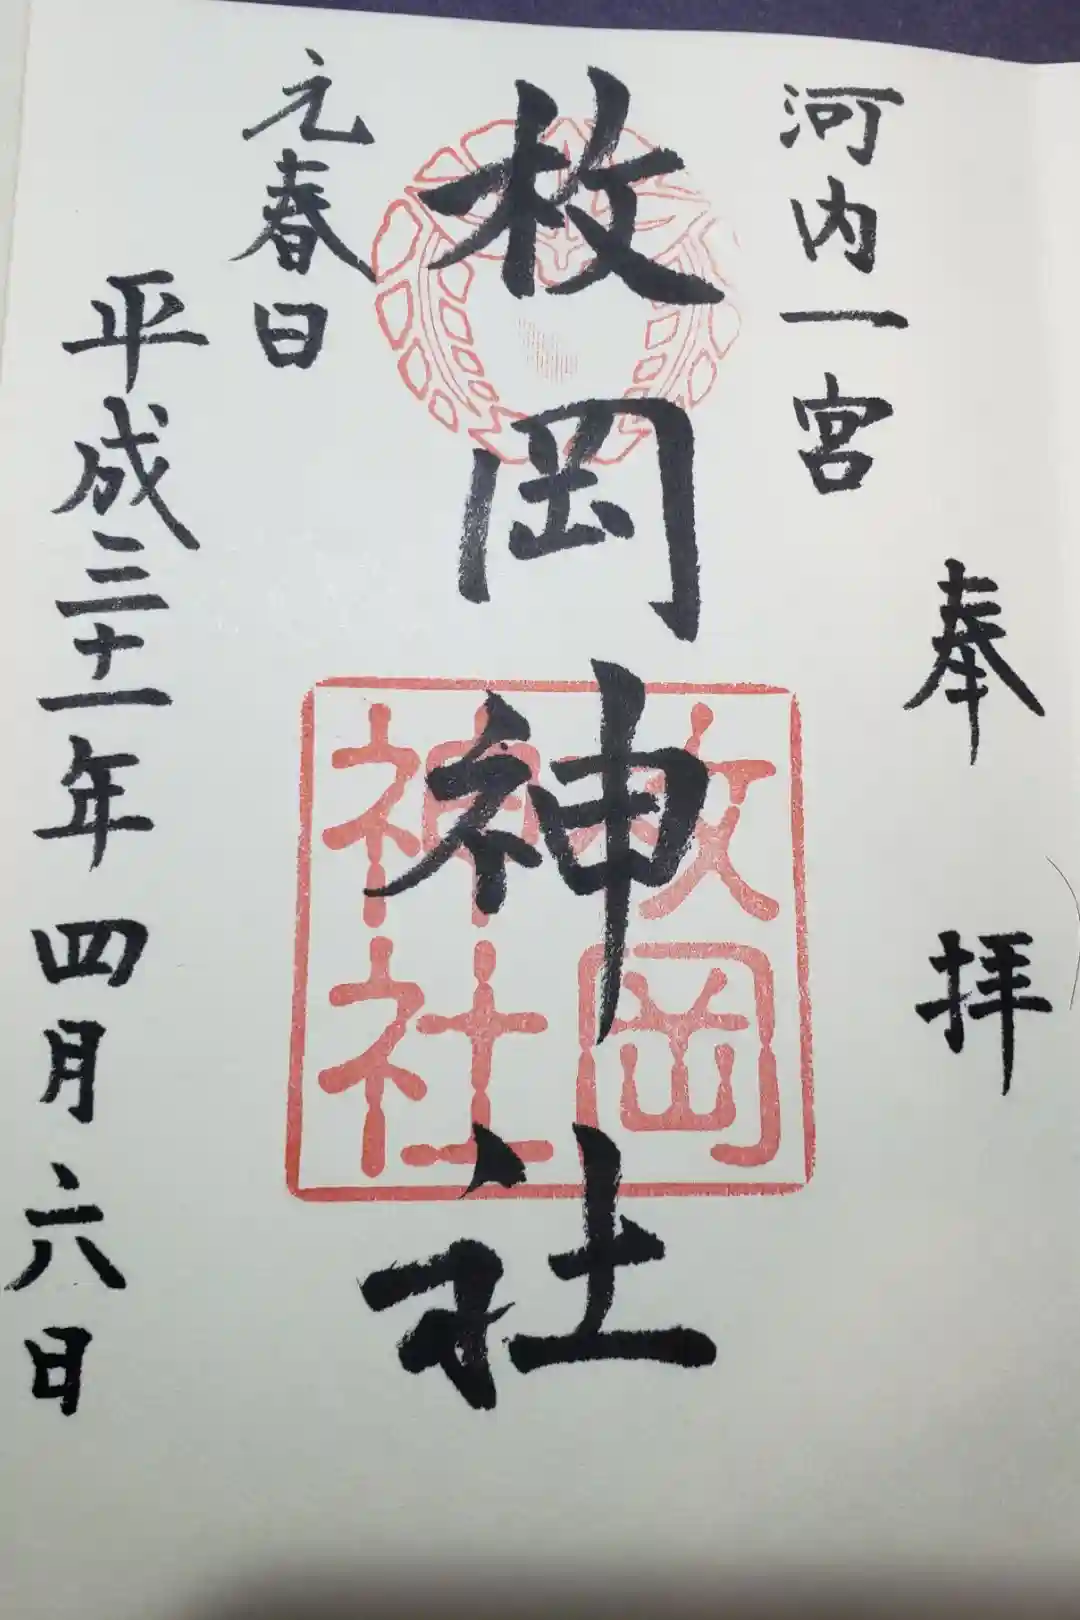 奉拝
河内一宮
枚岡神社
元春日
平成三十一年四月六日
枚岡
神社